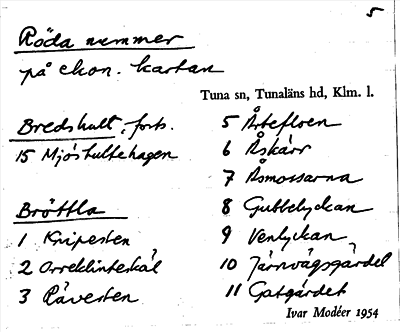 5
Röda nummer
på ekon. kartan
Tuna sn, Tunaläns hd, Klm. l.
Bredshult, forts.
15 Mjöshultehagen
Bröttla
1 Knipesten
2 Orreklinteskäl
3 Rävesten
5 Ärtefloen
6 Åskärr
7 Åsmossarna
8 Gubbelyckan
9 Venlyckan
10 Järnvägsgärdet
11 Gatgärdet
Ivar Modéer 1954